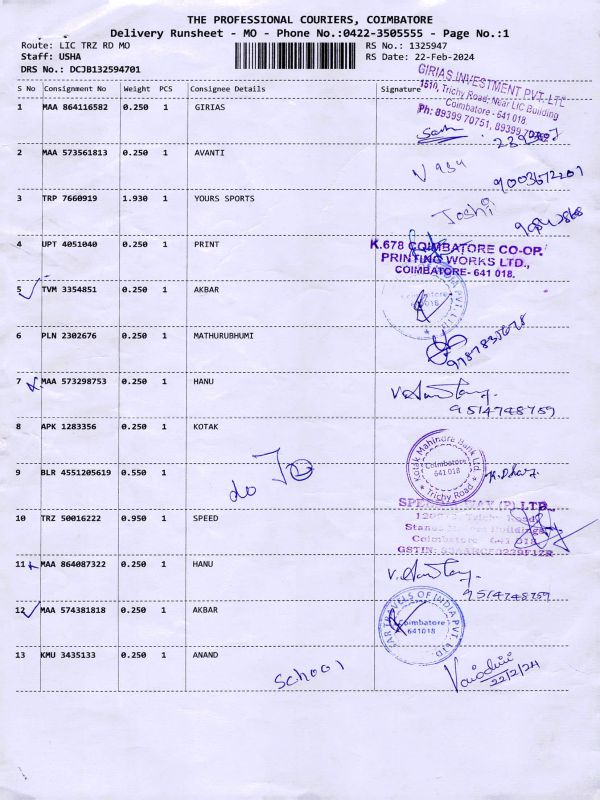 THE PROFESSIONAL COURIERS, COIMBATORE
Delivery Runsheet - MO - Phone No.:0422-3505555 - Page No.:1
Route: LIC TRZ RD MO RS No.: 1325947
Staff: USHA RS Date: 22-Feb-2024
DRS No.: DCJB132594701
S No Consignment No Weight PCS Consignee Details Signature
GIRIAS INVESTMENT PVT. LTD
1510, Trichy Road, Near LIC Building
Coimbatore - 641 018.
Ph: 89399 70751, 89399
1 MAA 864116582 0.250 1 GIRIAS
2 MAA 573561813 0.250 1 AVANTI
9003672207
3 TRP 7660919 1.930 1 YOURS SPORTS Joshi
4 UPT 4051040 0.250 1 PRINT
K.678 COIMBATORE CO-OP.
PRINTING WORKS LTD.,
COIMBATORE- 641 018.
5 TVM 3354851 0.250 1 AKBAR
6 PLN 2302676 0.250 1 MATHURUBHUMI
7 MAA 573298753 0.250 1 HANU
9514748759
8 APK 1283356 0.250 1 KOTAK
Kotak Mahindra Bank Ltd.
Coimbatore
641 018
Trichy Road
9 BLR 4551205619 0.550 1
10 TRZ 50016222 0.950 1 SPEED
11 MAA 864087322 0.250 1 HANU
9514748759
12 MAA 574381818 0.250 1 AKBAR
TRAVELS OF INDIA PVT. LTD.
Coimbatore
641018
13 KMU 3435133 0.250 1 ANAND
School
22/2/24